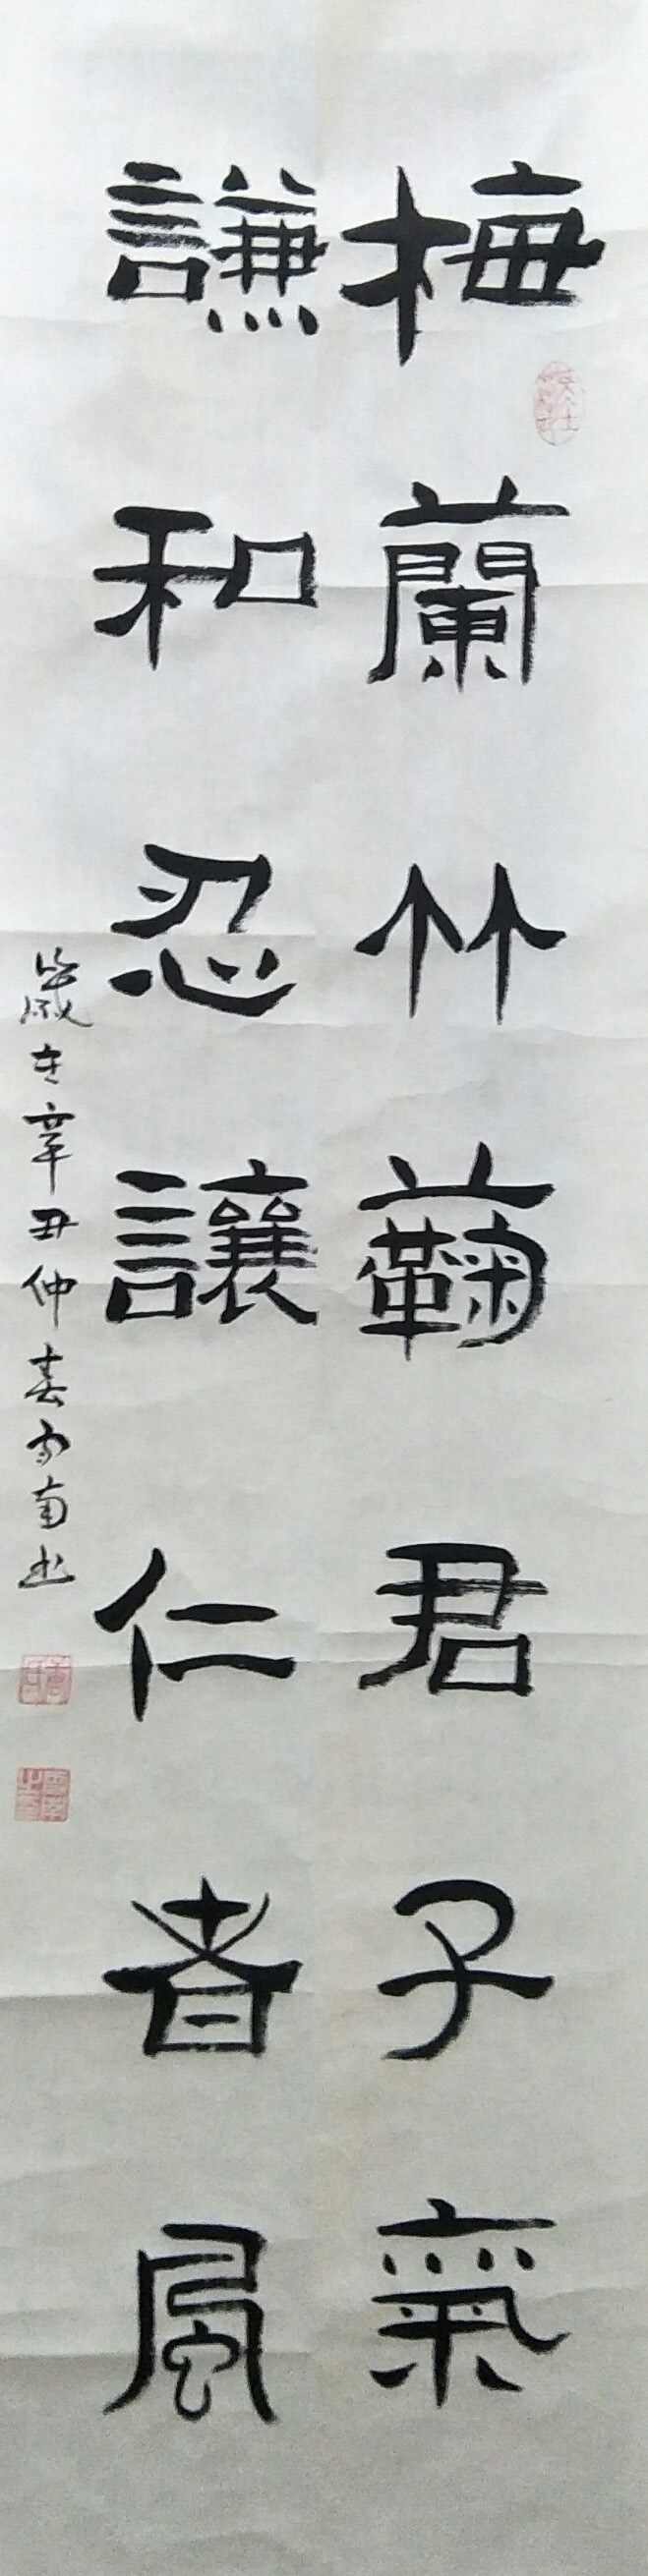 梅蘭竹蘜君子氣
謙和忍讓仁者風
歲在辛丑仲春雨南书